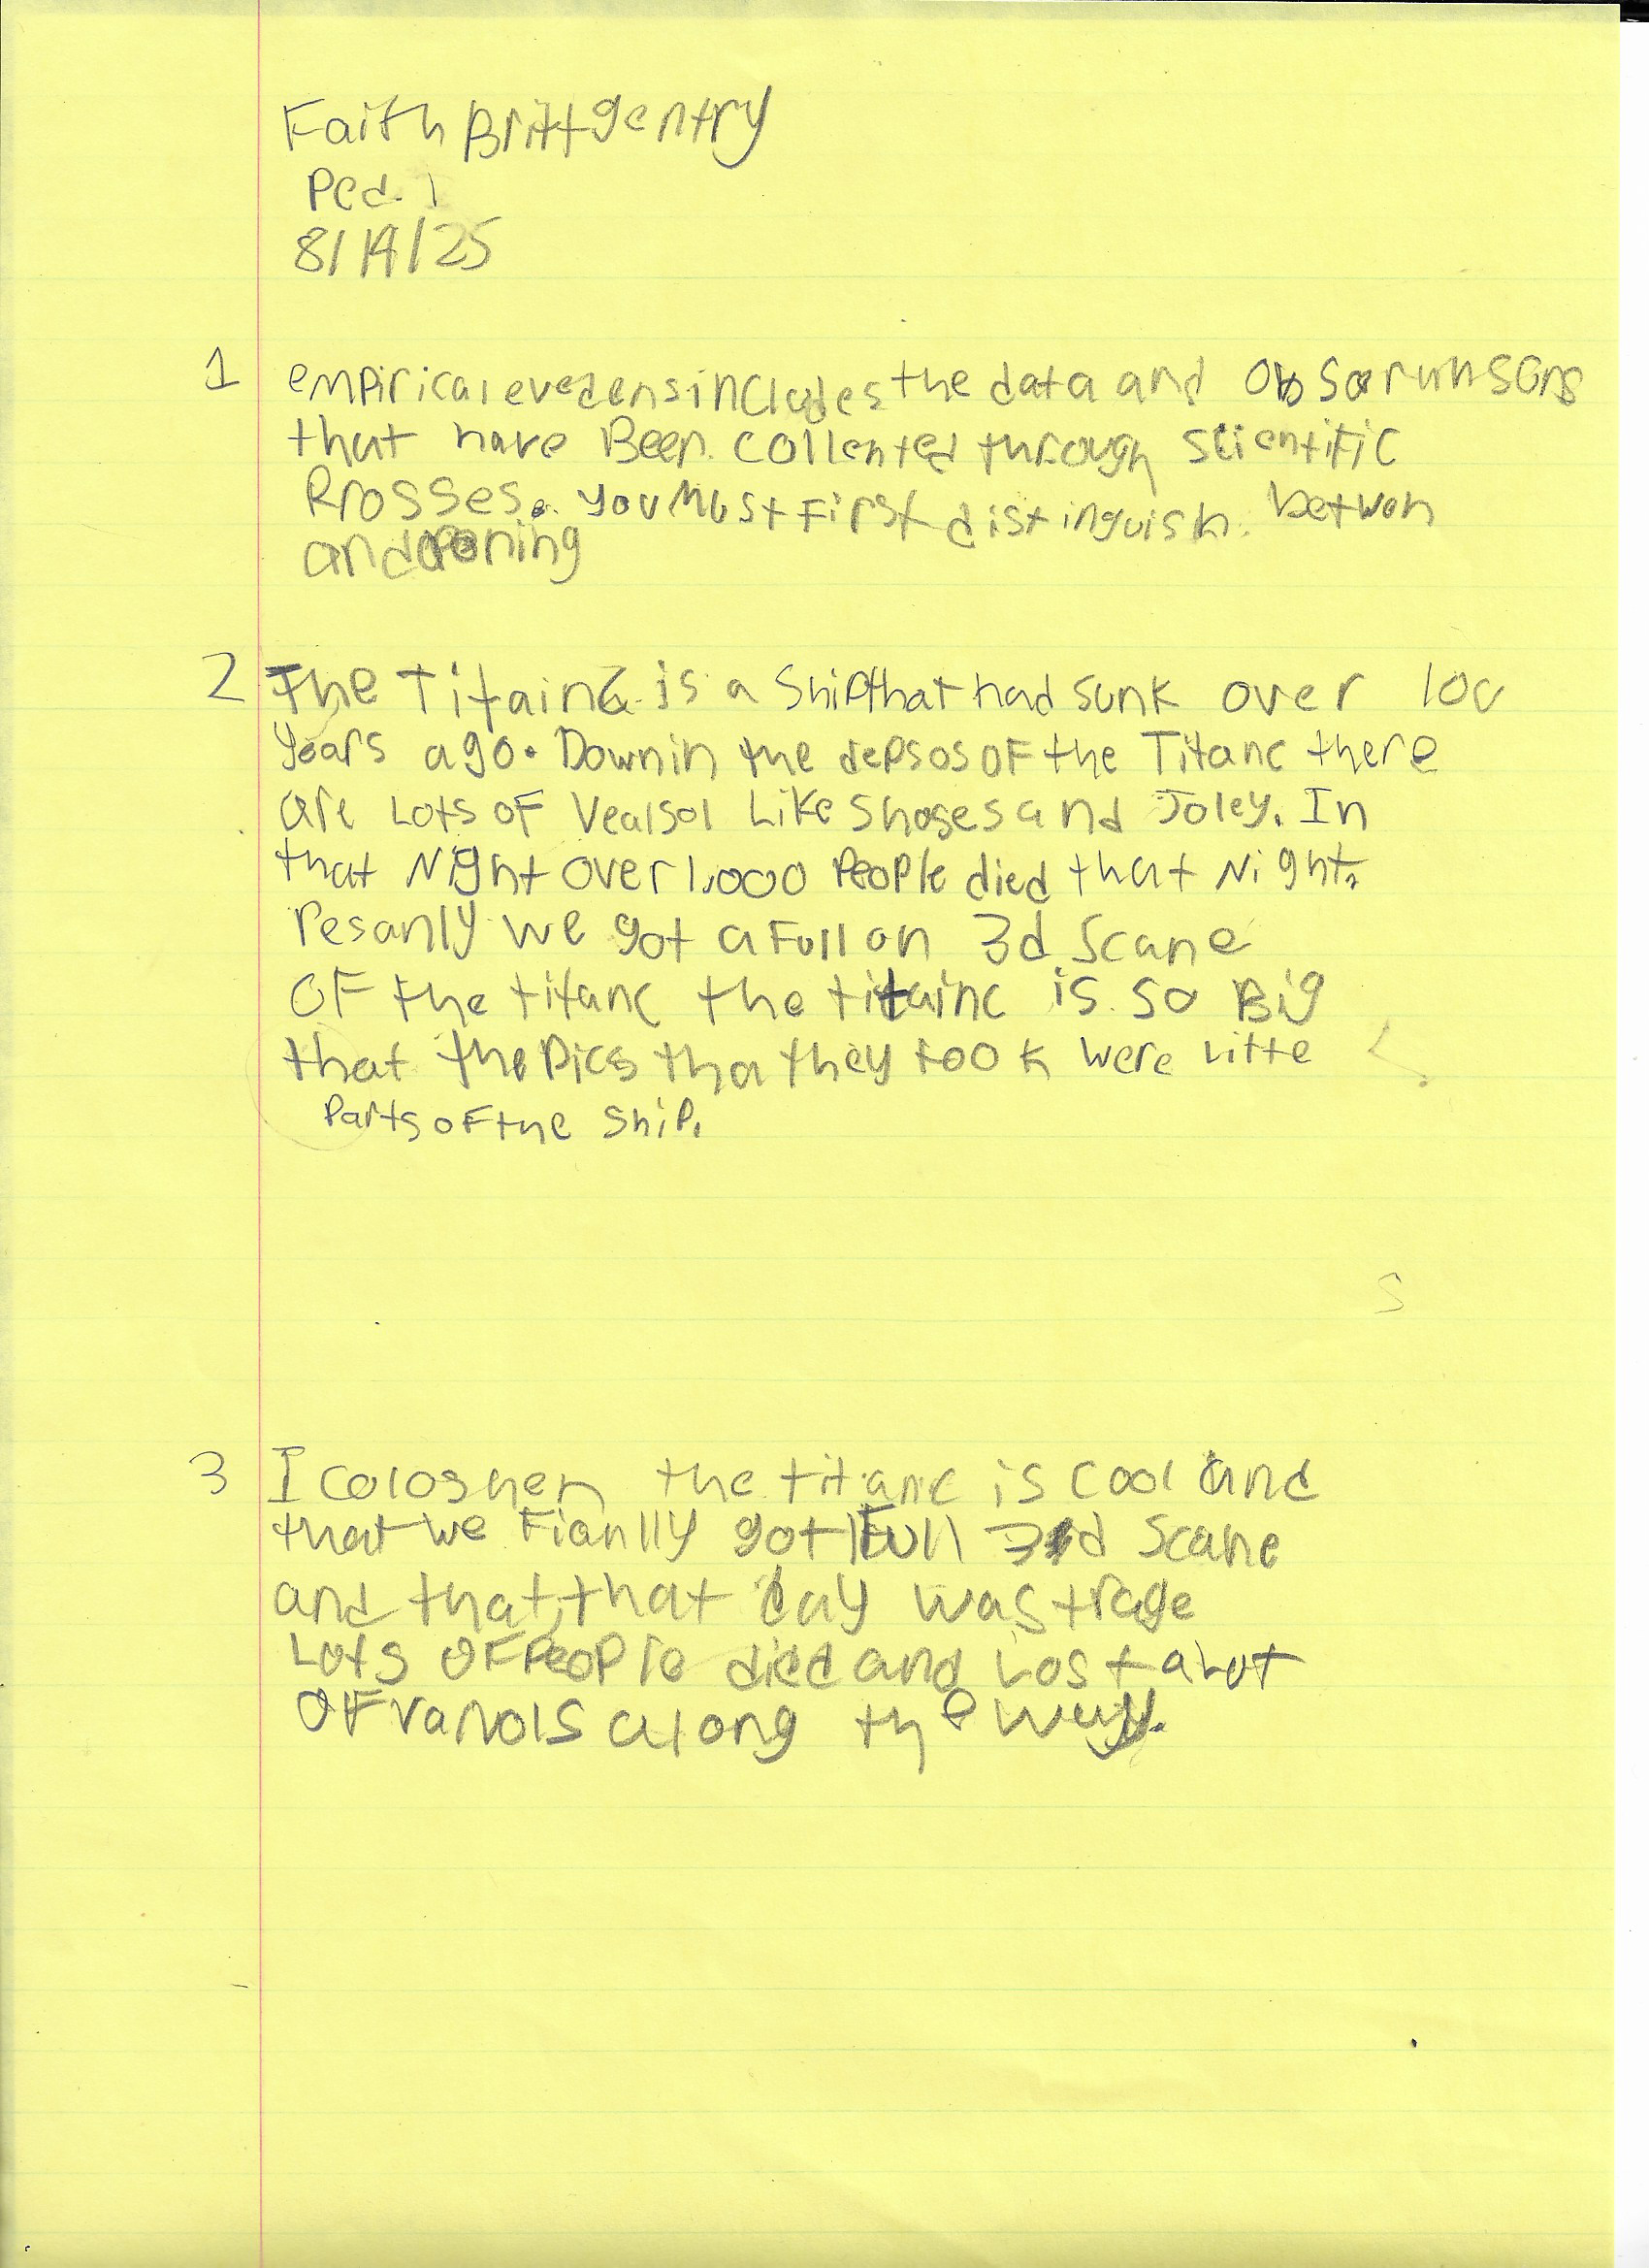 Faith Brittgentry
Ped. 1
8/19/25
1 empirical evedens includes the data and
that have Been collented through scientific
Prosses. you Must First distinguish. betwen
and
2 The Titainc is a Ship that had sunk over 100
years ago. Down in the depsos OF the Titanc there
are Lots oF Vealsol Like Shoses and Joley. In
that Night over 1,000 People died that Night.
resanly we got a Full on 3d Scane
OF the titanc the titainc is so Big
that the Pics tha they took were Litte
Parts oF the Ship.
S
3 I coloshen the titanic is cool and
that we Fianlly got Full 3d Scane
and that, that day was trage
Lots oF People died and Lost a Lot
OF valvols along the way.